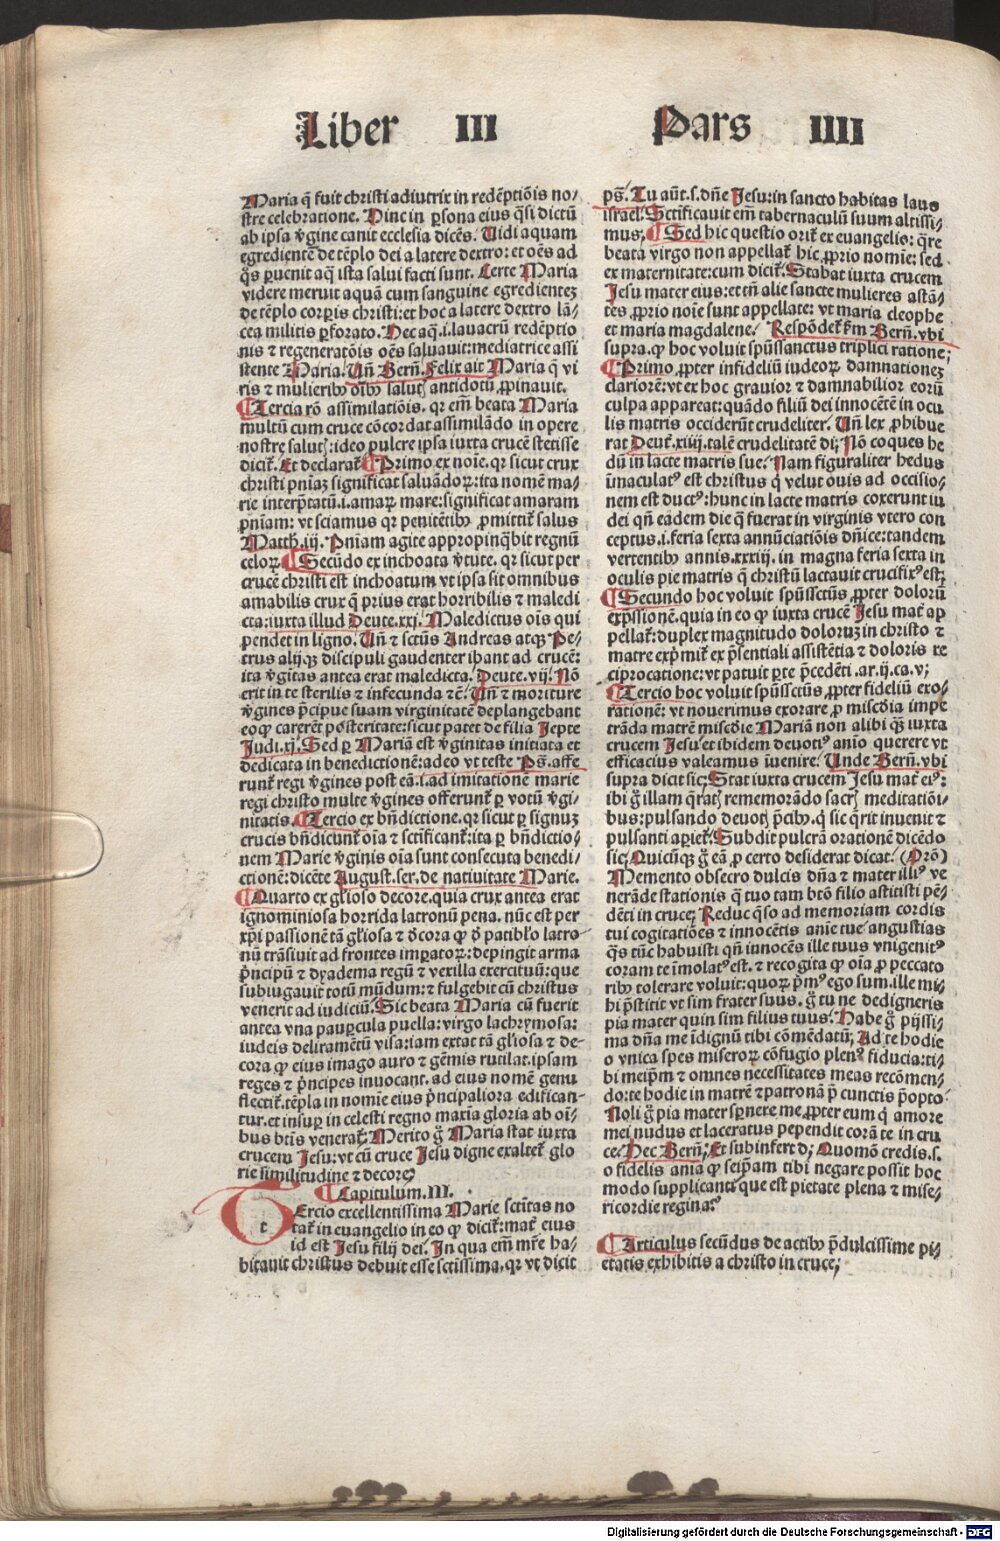 Liber III
Pars IIII
Maria q̄ fuit christi adiutrix in redēptiōis no-
stre celebratione. Hinc in ꝑsona eius q̄si dictū
ab ipsa v̄gine canit ecclesia dicēs. Uidi aquam
egredientē de tēplo dei a latere dextro: et oēs ad
q̄s ꝑuenit aq̄ ista salui facti sunt. Certe Maria
videre meruit aquā cum sanguine egredientez
de tēplo corꝑis christi: et hoc a latere dextro lā-
cea militis ꝑforato. Hec aq̄.i.lauacrū redēptio
nis ⁊ regeneratōis oēs saluauit: mediatrice assi
stente Maria. Un̄ Bern̄. Felix ait Maria q̄ vi
ris ⁊ mulieribꝰ oībꝰ salutꝭ antidotū ꝓpinauit.
¶ Tercia rō assimilatiōis. qr em̄ beata Maria
multū cum cruce cōcordat assimilādo in opere
nostre salutꝭ: ideo pulcre ipsa iuxta crucē stetisse
dicit̄. Et declarat̄ ¶ Primo ex noīe. qr sicut crux
christi pn̄iaꝫ significat saluādoꝝ: ita nomē ma-
rie interp̄tatū.i.amaꝝ mare: significat amaram
pn̄iam: vt sciamus qr penitētibꝰ ꝓmittit̄ salus
Matth.iij. Pn̄iam agite appropinq̄bit regnū
celoꝝ. ¶ Secūdo ex inchoata v̄tute. qr sicut per
crucē christi est inchoatum vt ipsa sit omnibus
amabilis crux q̄ prius erat horribilis ⁊ maledi
cta: iuxta illud Deute.xxj. Maledictus oīs qui
pendet in ligno. Un̄ ⁊ sctūs Andreas atqꝫ Pe-
trus alijqꝫ discipuli gaudenter ibant ad crucē:
ita v̄gitas antea erat maledicta. Deute.vij. Nō
erit in te sterilis ⁊ infecunda ⁊c̄. Un̄ ⁊ moriture
v̄gines p̄cipue suam virginitatē deplangebant
eo ꝙ carerēt posteritate: sicut patet de filia Jepte
Judi.xj. Sed ꝑ Mariā est v̄ginitas initiata et
dedicata in benedictionē: adeo vt teste Ps̄. affe
runt̄ regi v̄gines post eā.i.ad imitationē marie
regi christo multe v̄gines offerunt̄ ꝑ votū v̄gi-
nitatis. ¶ Tercio ex bn̄dictione. qr sicut ꝑ signuꝫ
crucis bn̄dicunt̄ oīa ⁊ sctificant̄: ita ꝑ bn̄dictio-
nem Marie v̄ginis oīa sunt consecuta benedi-
ctionē: dicēte August. ser. de natiuitate Marie.
¶ Quarto ex gl̄ioso decore. quia crux antea erat
ignominiosa horrida latronū pena. nūc est per
xp̄i passionē tā gl̄iosa ⁊ d̄cora ꝙ d̄ patibl̄o latro-
nū trāsiuit ad frontes imꝑatoꝝ: depingit arma
p̄ncipū ⁊ dyadema regū ⁊ vexilla exercituū: que
subiugauit totū mūdum: ⁊ fulgebit cū christus
venerit ad iudiciū. Sic beata Maria cū fuerit
antea vna pauꝑcula puella: virgo lachrymosa:
iudeis deliramētū visa: iam extat tā gl̄iosa ⁊ de-
cora ꝙ eius imago auro ⁊ gēmis rutilat. ipsam
reges ⁊ p̄ncipes inuocant. ad eius nomē genu
flectit̄. tēpla in nomīe eius p̄ncipaliora edifican-
tur. et insuꝑ in celesti regno maxia gloria ab oī-
bus btīs venerat̄. Merito ḡ Maria stat iuxta
crucem Jesu: vt cū cruce Jesu digne exaltet̄ glo
rie similitudine ⁊ decore;
¶ Capitulum.III.
Tercio excellentissima Marie sctītas no
tat̄ in euangelio in eo ꝙ dicit̄: mat̄ eius
id est Jesu filij dei. In qua em̄ mr̄e ha-
bitauit christus debuit esse sctissima. qr vt dicit
ps̄. Tu aūt.s.dn̄e Jesu: in sancto habitas laus
israel. Sctificauit em̄ tabernaculū suum altissi-
mus; ¶ Sed hic questio orit̄ ex euangelio: q̄re
beata virgo non appellat̄ hic ꝓprio nomīe: sed
ex maternitate: cum dicit̄. Stabat iuxta crucem
Jesu mater eius: et tn̄ alie sancte mulieres astā-
tes ꝓprio noīe sunt appellate: vt maria cleophe
et maria magdalene. Respōdet̄ fm Bern̄. vbi
supra. ꝙ hoc voluit spūssanctus triplici ratione;
¶ Primo ꝓpter infideliū iudeoꝝ damnationeꝫ
clariorē: vt ex hoc grauior ⁊ damnabilior eorū
culpa appareat: quādo filiū dei innocētē in ocu
lis matris occiderūt crudeliter. Un̄ lex ꝓhibue
rat Deut̄.xiiij. talē crudelitatē dī; Nō coques he
dū in lacte matris sue. Nam figuraliter hedus
īmaculatꝰ est christus q̄ velut ouis ad occisio-
nem est ductꝰ: hunc in lacte matris coxerunt iu
dei qn̄ eadem die q̄ fuerat in virginis vtero con
ceptus.i.feria sexta annūciatiōis dn̄ice: tandem
vertentibꝰ annis.xxxiij. in magna feria sexta in
oculis pie matris q̄ christū lactauit crucifixꝰ est;
¶ Secundo hoc voluit spūssctūs ꝓpter dolorū
exp̄ssionē. quia in eo ꝙ iuxta crucē Jesu mat̄ ap
pellat̄: duplex magnitudo doloruꝫ in christo ⁊
matre exp̄mit̄ ex p̄sentiali assistētia ⁊ doloris re
ciprocatione: vt patuit ꝑte p̄cedēti.ar.ij.ca.v;
¶ Tercio hoc voluit spūssctūs ꝓpter fideliū exo-
rationē: vt nouerimus exorare ꝓ miscd̄ia impe
trāda matrē miscd̄ie Mariā non alibi q̄ꝫ iuxta
crucem Jesu: et ibidem deuotiꝰ anīo querere vt
efficacius valeamus īuenire. Unde Bern̄. vbi
supra dicit sic; Stat iuxta crucem Jesu mat̄ eiꝰ:
ibi ḡ illam q̄rat̄ꝭ rememorādo sacrꝭ meditatiōi-
bus: pulsando deuotꝭ p̄cibꝰ. q̄ sic q̄rit inuenit ⁊
pulsanti aꝑiet̄. Subdit pulcrā orationē dicēdo
sic; Quicūqꝫ ḡ eā ꝓ certo desiderat dicat. (Orō)
Memento obsecro dulcis dn̄a ⁊ mater illiꝰ ve
nerāde stationis q̄ tuo tam btō filio astitisti pē-
dēti in cruce; Reduc q̄so ad memoriam cordis
tui cogitatiōes ⁊ innocētis anīe tue angustias
q̄s tūc habuisti qn̄ innocēs ille tuus vnigenitꝰ
coram te īmolatꝰ est. ⁊ recogita ꝙ oīa ꝓ peccato
ribꝰ tolerare voluit: quoꝝ p̄mꝰ ego sum. ille mi-
hi p̄stitit vt sim frater suus. ḡ tu ne dedigneris
pia mater quin sim filius tuus. Habe ḡ pijssi-
ma dn̄a me īdignū tibi cōmēdatū; Ad te hodie
o vnica spes miseroꝝ cōfugio plenꝰ fiducia: ti-
bi meip̄m ⁊ omnes necessitates meas recōmen-
do: te hodie in matrē ⁊ patronā p̄ cunctis p̄opto
Noli ḡ pia mater sꝑnere me ꝓpter eum q̄ amore
mei nudus et laceratus pependit corā te in cru
ce. Hec Bern̄; Et subinfert d; Quomō credis.s.
o fidelis anīa ꝙ seip̄am tibi negare possit hoc
modo supplicanti que est pietate plena ⁊ mise-
ricordie regina?
¶ Articulus secūdus de actibꝰ p̄dulcissime pi-
etatis exhibitis a christo in cruce;
Digitalisierung gefördert durch die Deutsche Forschungsgemeinschaft - DFG